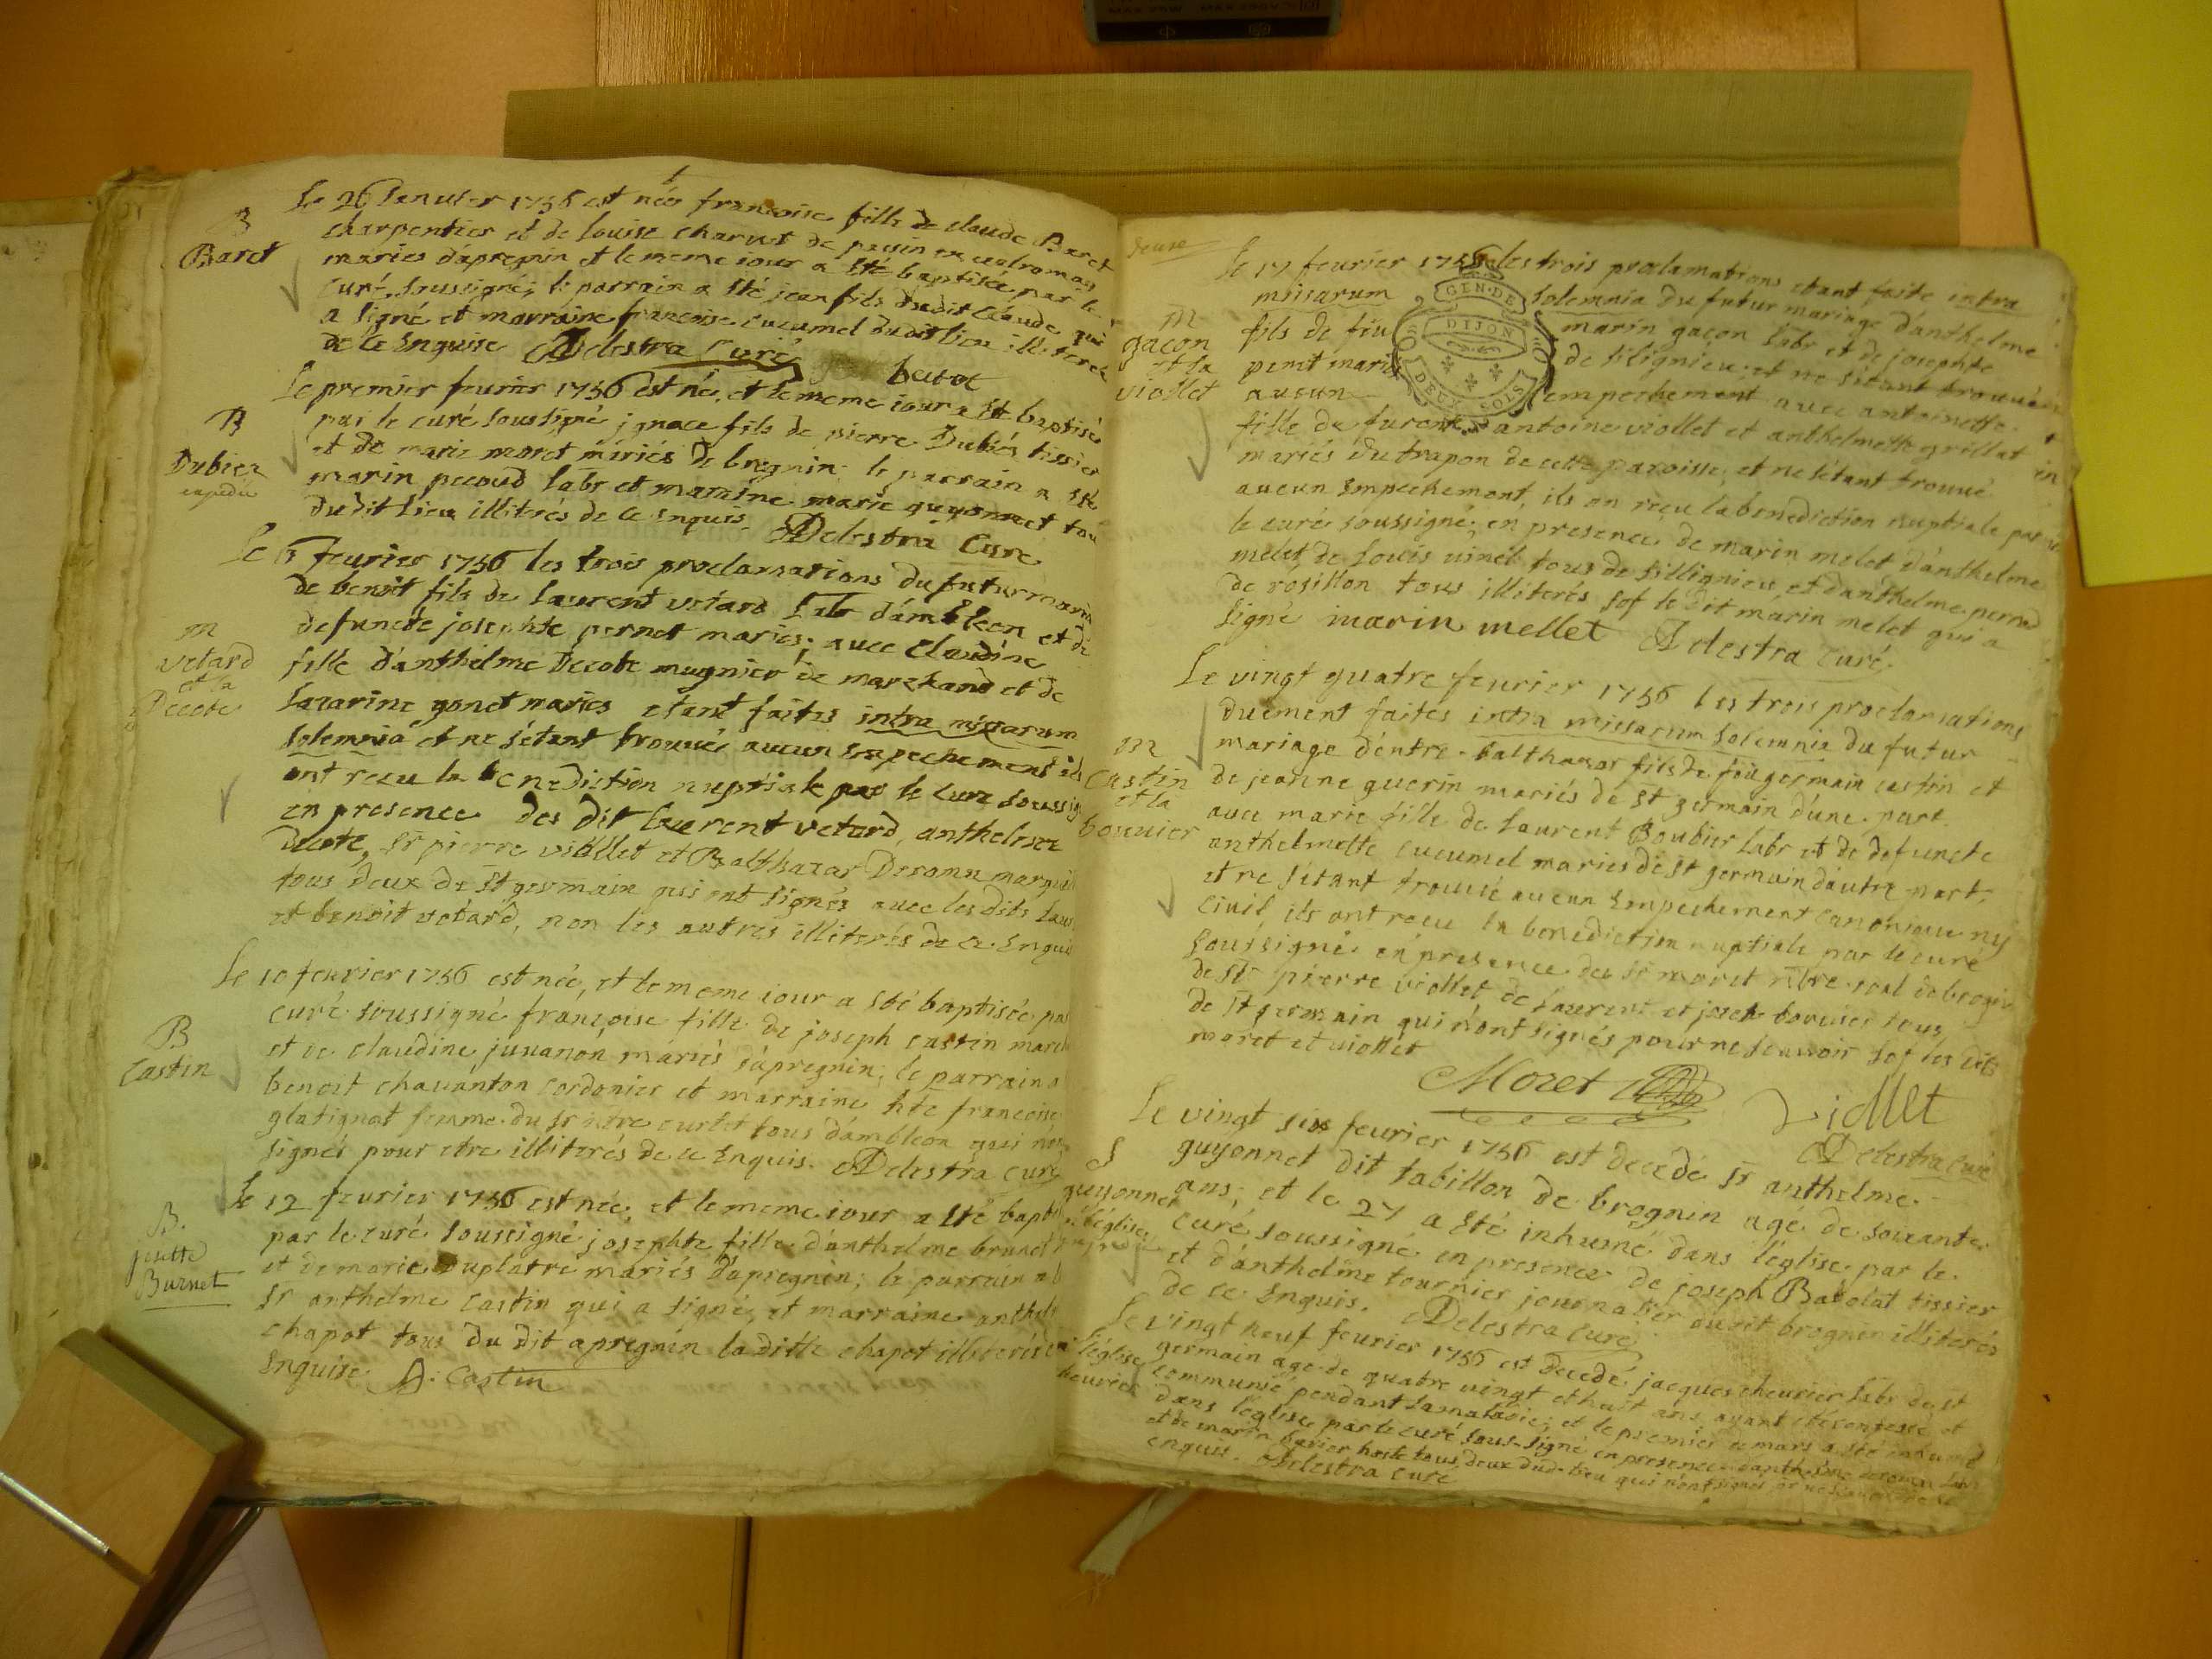 B
Baret
Le 26 Ienuier 1756 est née francoise fille de claude Baret
charpentier et de louise charuet de peuin en ualromay
mariés d'apregnin et le meme iour a été baptisée par le
curé soussigné; le parrain a été jean fils dudit Claude qui
a signé et marraine francoise cucumel dudit lieu illiterée
de ce Enquise Delestra Curé baret
B
Dubier
expedie
Le premier feurier 1756 est né, et le meme iour a été baptisé
par le curé soussigné jgnace fils de pierre Dubiés tissier
et de marie moret mériés de bregnin. le parrain a été
marin pecoud labr et maraine marie guyonnet tou
dudit lieu illiterés de ce enquis. Delestra Cure
m
vetard
et la
Decote
Le feurier 1756 les trois proclamations du futur maria
de benoit fils de laurent vetard labr d'ambleon et de
defuncte josephte pernet mariés; auec claudine
fille d'anthelme Decote mugnier de marchand et de
lazarine gonet mariés etant faites intra missarum
solemnia et ne s'étant trouué aucun Empechement ils
ont receu la benediction nuptiale par le curé soussig
en presence des dit laurent vetard, anthelme
decote, Sr pierre viollet et Balthazar Deromu
tous deux de St germain qui ont signés auec les dits lau
et benoit vetard, non les autres illiterés de ce Enqui
B
Castin
Le 10 feurier 1756 est née, et le meme iour a été baptisée pa
curé soussigné françoise fille de joseph castin
et de claudine juuanon mariés d'apregnin; le parrain a
benoit chauanton cordonier et marraine hte francoise
glatignat femme du sr curtet tous d'ambleon qui n'o
signés pour etre illiterés de ce Enquis. Delestra curé
B.
josette
Burnet
Le 12 feurier 1756 est née, et le meme iour a été bapt
par le curé soussigné josephte fille d'anthelme brunet
et de marie duplatre mariés d'apregnin; le parrain a
sr anthelme castin qui a signé, et marraine anthel
chapot tous du dit apregnin laditte chapot illiterée
Enquise A: Castin
deuxe
m
gacon
et la
viollet
Le 17 feurier 1756 les trois proclamations etant faite intra
missarum solemnia du futur mariage d'anthelme
fils de feu marin gaçon labr et de josephte
pernet marié de silignieu et ne s'étant trouué
aucun empechement auec antoinette
fille de furent antoine viollet et anthelmette grillat
mariés du trapon de cette paroisse, et ne s'étant trouué
aucun Empechement, ils on receu la benediction nuptiale par
le curé soussigné; en presence de marin melet d'anthelme
melet de louis uinet tous de silignieu, et d'anthelme perned
de rosillon tous illiterés sof le dit marin melet qui a
signé marin mellet Delestra curé
GEN · DE
DIJON
DEUX SOLS
m
Castin
et la
bouuier
Le vingt quatre feurier 1756 les trois proclamations
duement faites intra missarum solemnia du futur
mariage d'entre balthazar fils de feu germain castin et
de jeanne guerin mariés de St germain d'une part
auec marie fille de laurent Boubier labr et de defuncte
anthelmette cucumel mariés de st germain d'autre part,
et ne s'étant trouué aucun Empechement canonique ny
ciuil ils ont receu la benediction nuptiale par le curé
soussigné en presence de sr moret
de sr pierre viollet, de laurent et josek bouuier tous
de st germain qui n'ont signés pour ne scauoir sof les dits
moret et viollet
Moret Viollet
Delestra curé
S
guyonnet
Le vingt six feurier 1756 est decedé sr anthelme
guyonnet dit tabillon de brognin agé de soixante
ans; et le 27 a été inhumé dans l'église par le
curé soussigné en presence de joseph Batolat tissier
et d'anthelme tournier journalier dudit brognin illiterés
de ce Enquis. Delestra curé
l'église
heurier
Le vingt neuf feurier 1756 est decedé jacques cheurier labr de st
germain agé de quatre vingt et huit ans, ayant été confessé et
communié pendant sa maladie; et le premier de mars a été inhumé
dans l'église par le curé sous-signé en presence d'anthelme
et de marin hoste tous deux dud. lieu qui n'ont signés
enquis. Delestra curé